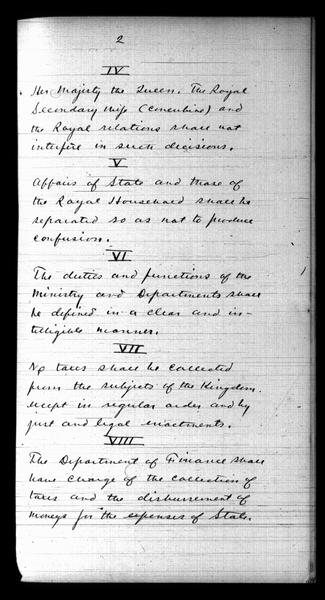 2
IV
Her Majesty the Queen. The Royal
Secondary wife (concubine) and
the Royal relations shall not
interfire in such decisions.
V
Affairs of State and those of
the Royal Household shall be
separated so as not to produce
confusion.
VI
The duties and functions of the
Ministry and Departments shall
be defined in a clear and in-
telligible manner.
VII
No taxes shall be collected
from the subjects of the Kingdom
except in regular order and by
just and legal enactments.
VIII
The Department of Finance shall
have charge of the collection of
taxes and the disbursement of
moneys for the expenses of State.